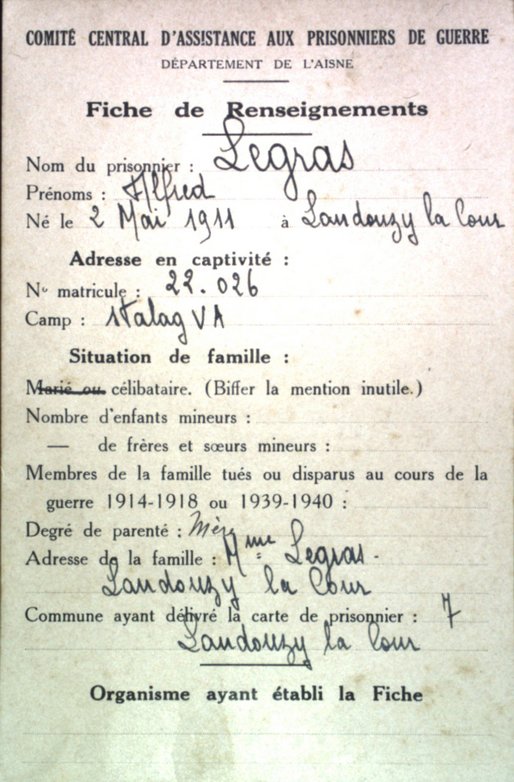 COMITÉ CENTRAL D'ASSISTANCE AUX PRISONNIERS DE GUERRE
DÉPARTEMENT DE L'AISNE
Fiche de Renseignements
Nom du prisonnier : Legras
Prénoms : Alfred
Né le 2 Mai 1911 à Landouzy la Cour
Adresse en captivité :
No matricule : 22.026
Camp : Stalag VA
Situation de famille :
Marié ou célibataire. (Biffer la mention inutile.)
Nombre d'enfants mineurs :
— de frères et sœurs mineurs :
Membres de la famille tués ou disparus au cours de la
guerre 1914-1918 ou 1939-1940 :
Degré de parenté : Mère
Adresse de la famille : Mme Legras -
Landouzy la Cour
Commune ayant délivré la carte de prisonnier : 7
Landouzy la Cour
Organisme ayant établi la Fiche